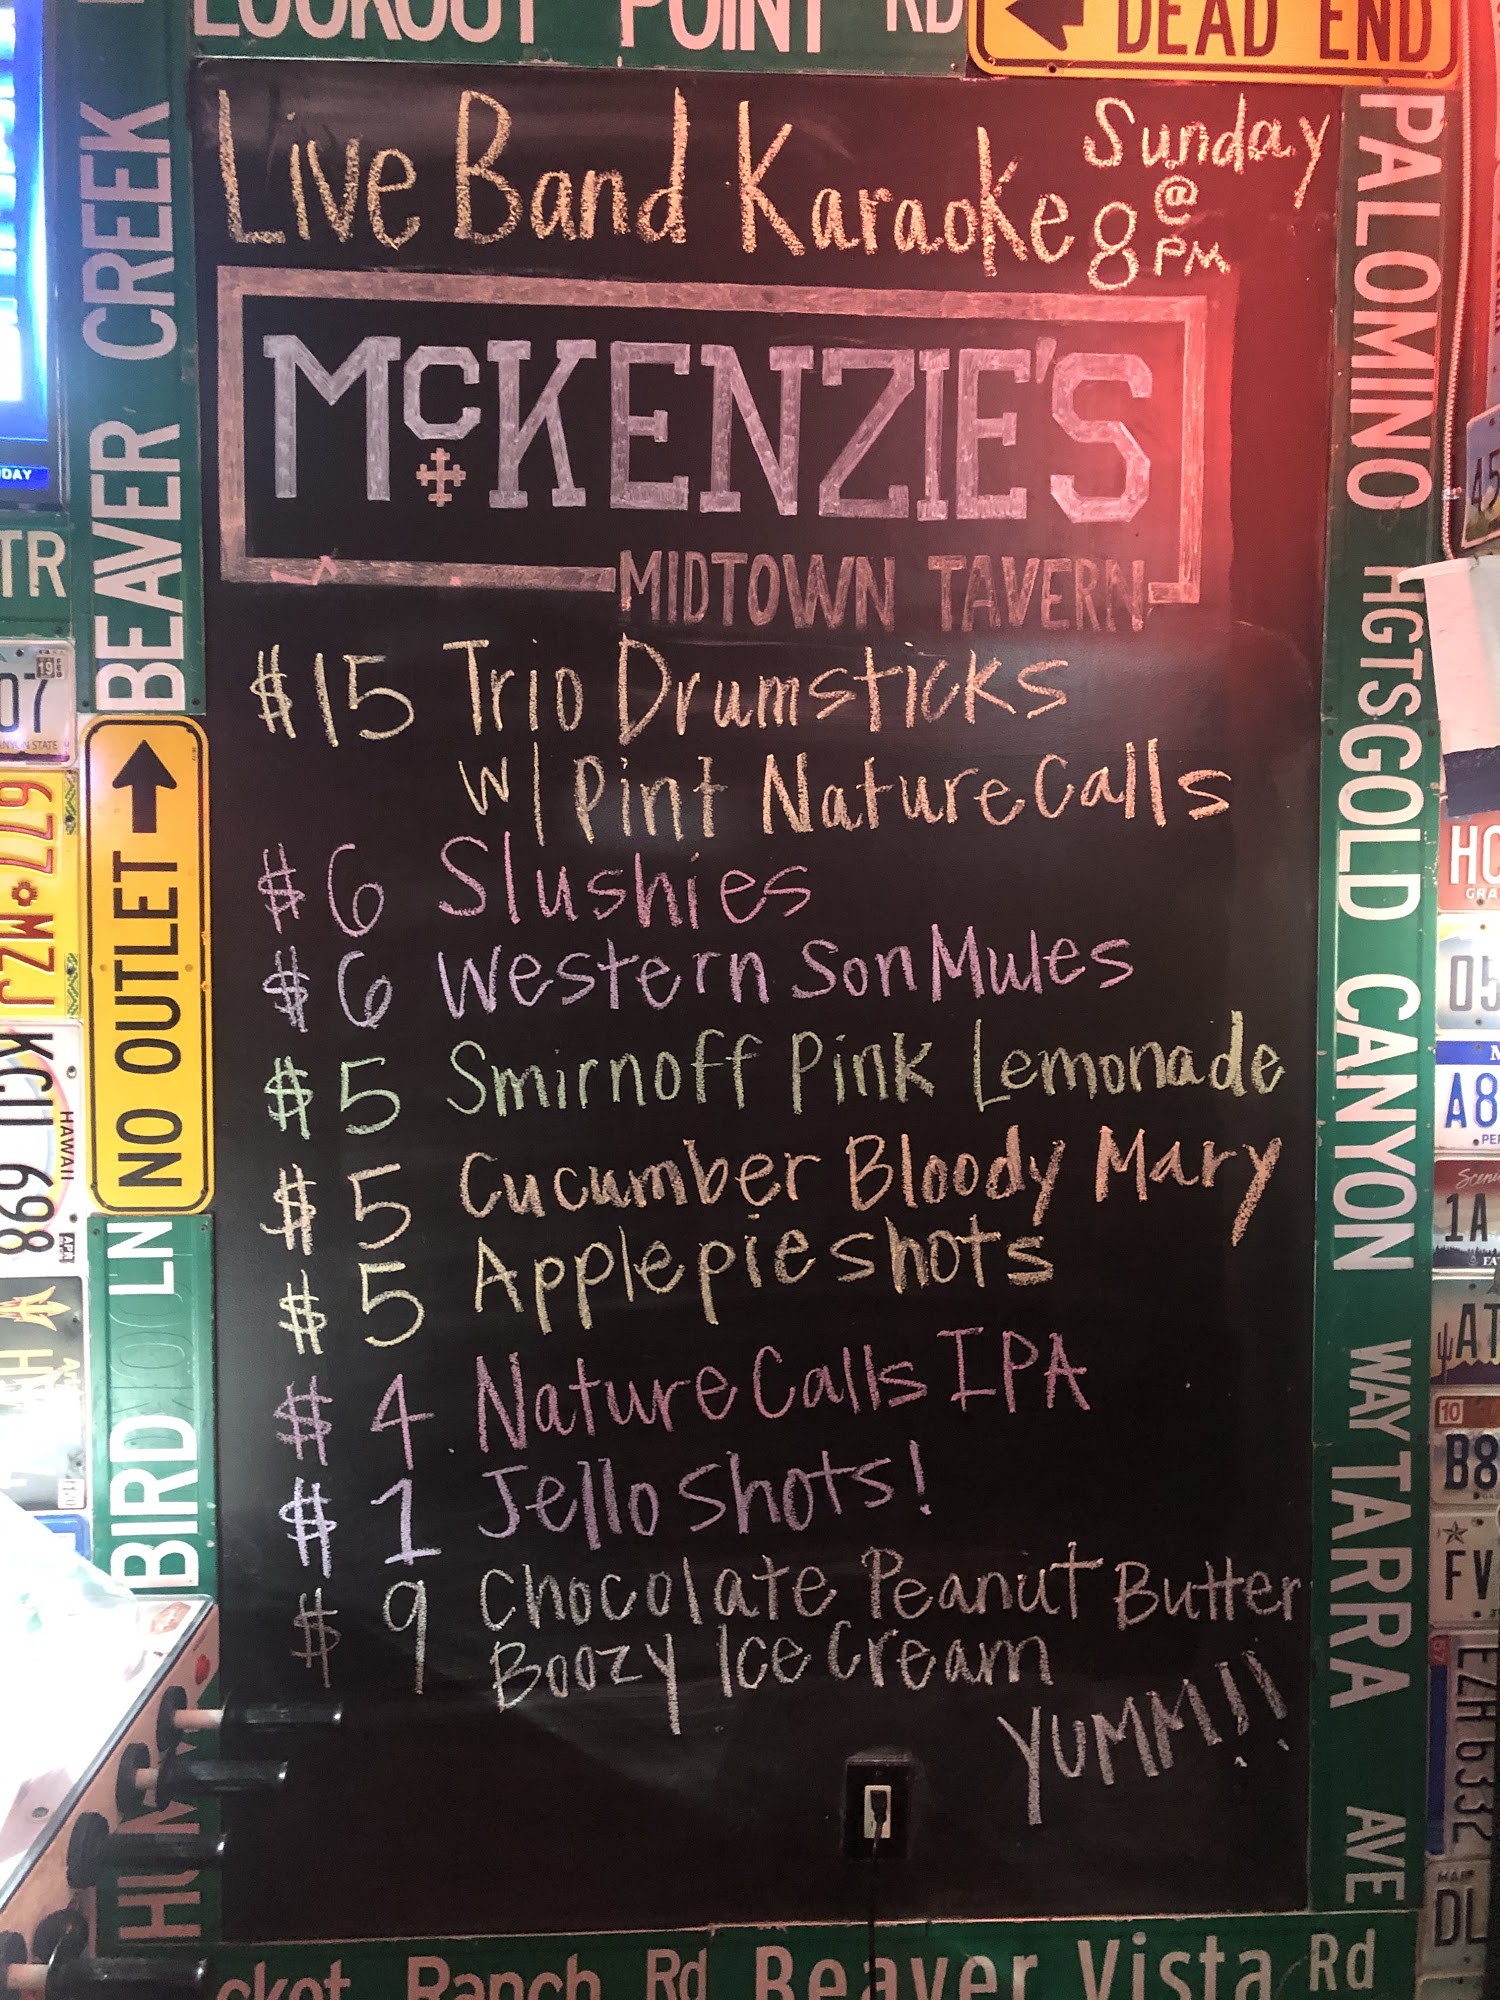 LOOKOUT POINT RD
DEAD END
Live Band Karaoke
Sunday
@
8 PM
McKENZIE'S
MIDTOWN TAVERN
$15 Trio Drumsticks
w/ Pint Nature Calls
$6 Slushies
$6 Western Son Mules
$5 Smirnoff Pink Lemonade
$5 Cucumber Bloody Mary
$5 Apple pie shots
$4 Nature Calls IPA
$1 Jello Shots!
$9 Chocolate Peanut Butter
Boozy Ice Cream
YUMM!!
BEAVER CREEK
NO OUTLET
BIRD LN
PALOMINO HGTS
GOLD CANYON WAY
TARRA AVE
Ranch Rd
Beaver Vista Rd
TR
DAY
19
07
677 MZJ
KGU 698
HAWAII
HC
05
A8
1A
AT
10
B8
FV
EZH 6332
DL
45